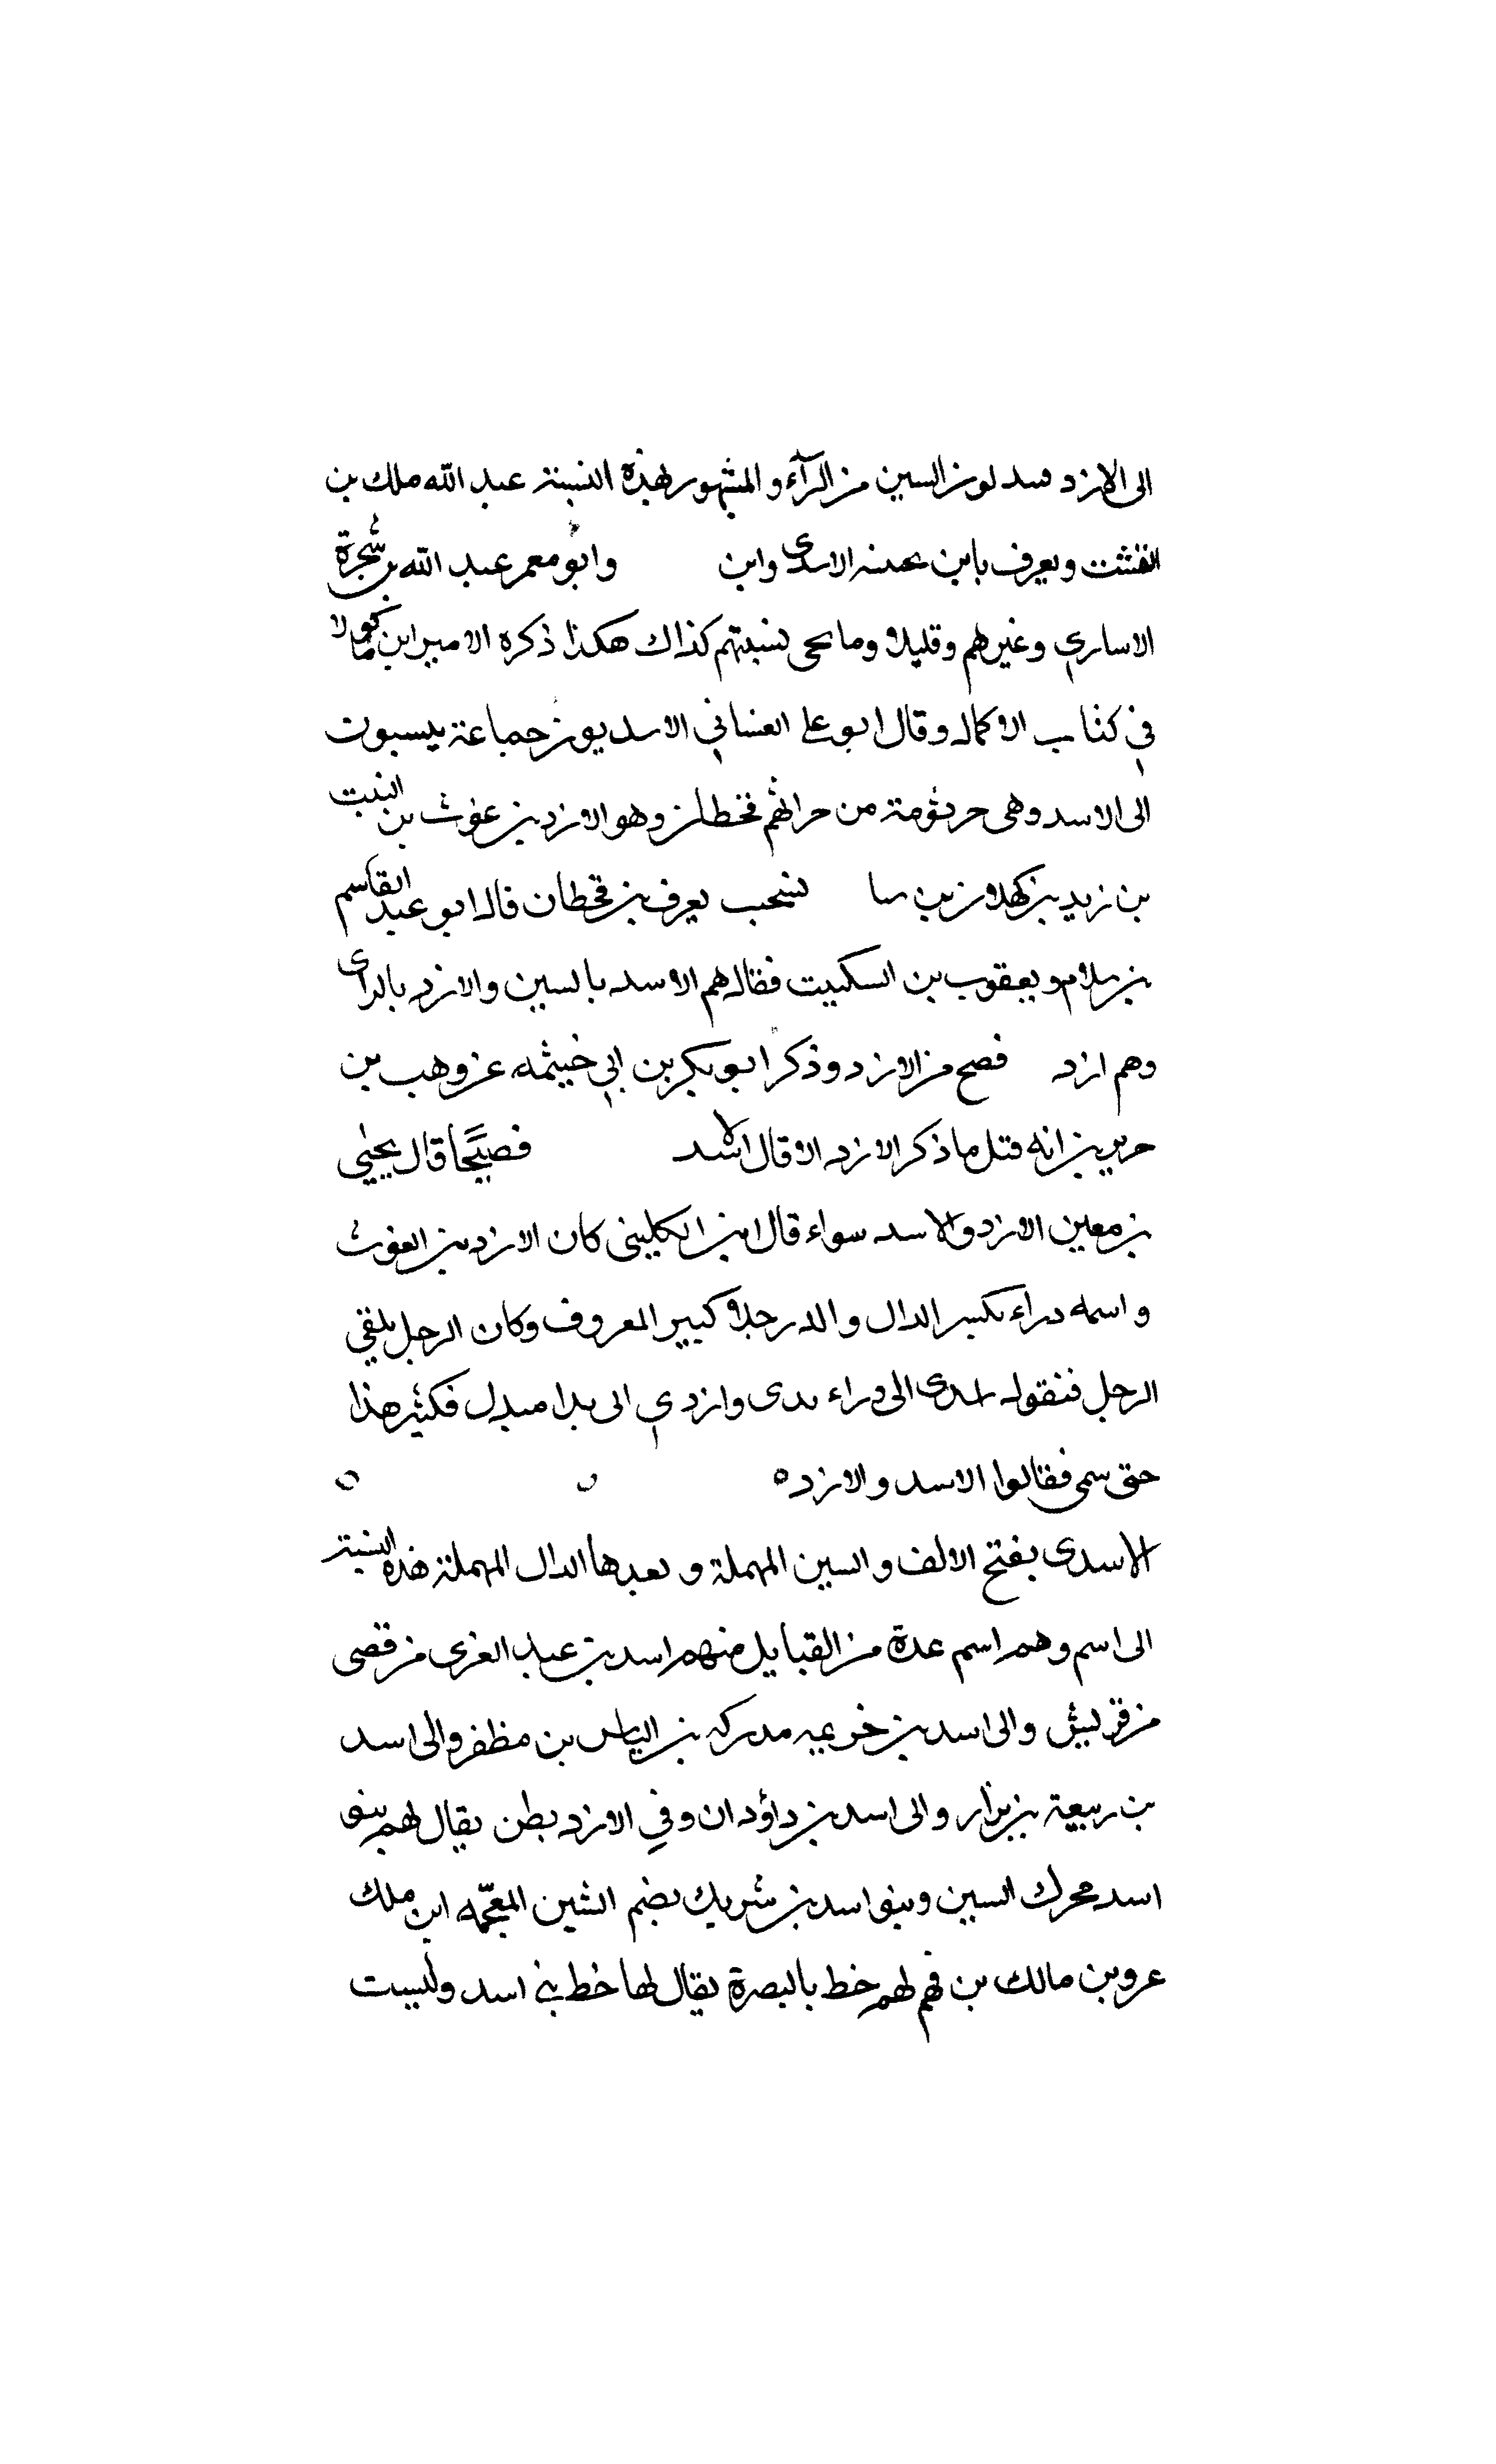 الى الازد فيبدلون السين من الرآء والمشهور بهذه النسبة عبد الله ملك بن
القشت ويعرف بابن بحينه الاسدى وابن وابو معمر عبد الله بن شجرة
الاساري وغيرهم وقليلا وما يحى نسبتهم كذاك هكذا ذكره الامير ابن ماكولا
في كتاب الاكمال وقال ابو على الغساني الاسديون جماعة ينسبون
الى الاسد وهى جرثومة من جراثيم قحطان وهو الازد بن غوث بن النبت
بن زيد بن كهلان بن سا يشجب يعرف بن قحطان قال ابو عبيد القاسم
بن سلام ويعقوب بن السكيت فقال هم الاسد بالسين والازد بالزاى
وهم ازد فصح من الازد وذكر ابو بكر بن ابي خيثمه عن وهب بن
جرير بن انه قتل ما ذكر الازد الا قال الاسد فصيحا قال يحيى
بن معين الازد والاسد سواء قال ابن الكلينى كان الازد بن الغوث
واسمه دراء بكسر الدال والد رجلا كبير المعروف وكان الرجل يلقي
الرجل فنقول الى دراء يدى وازدي الى يدا مبدل فكثر هذا
حتى سمى فقالوا الاسد والازد ه
الاسدى بفتح الالف والسين المهملة وبعدها الدال المهملة هذه النسبة
الى اسم وهم اسم عدة من القبايل منهم اسد بن عبد العزى من قصى
من قريش والى اسد بن خزيمه مدركه بن الياس بن مظفر والى اسد
بن ربيعة بن نزار والى اسد بن داؤدان وفي الازد بطن يقال لهم بنو
اسد محرك السين وبنو اسد بن شريك بضم الشين المعجمه ابن ملك
عروبن مالك بن فهم لهم خط بالبصرة يقال لها خط بني اسد وليست